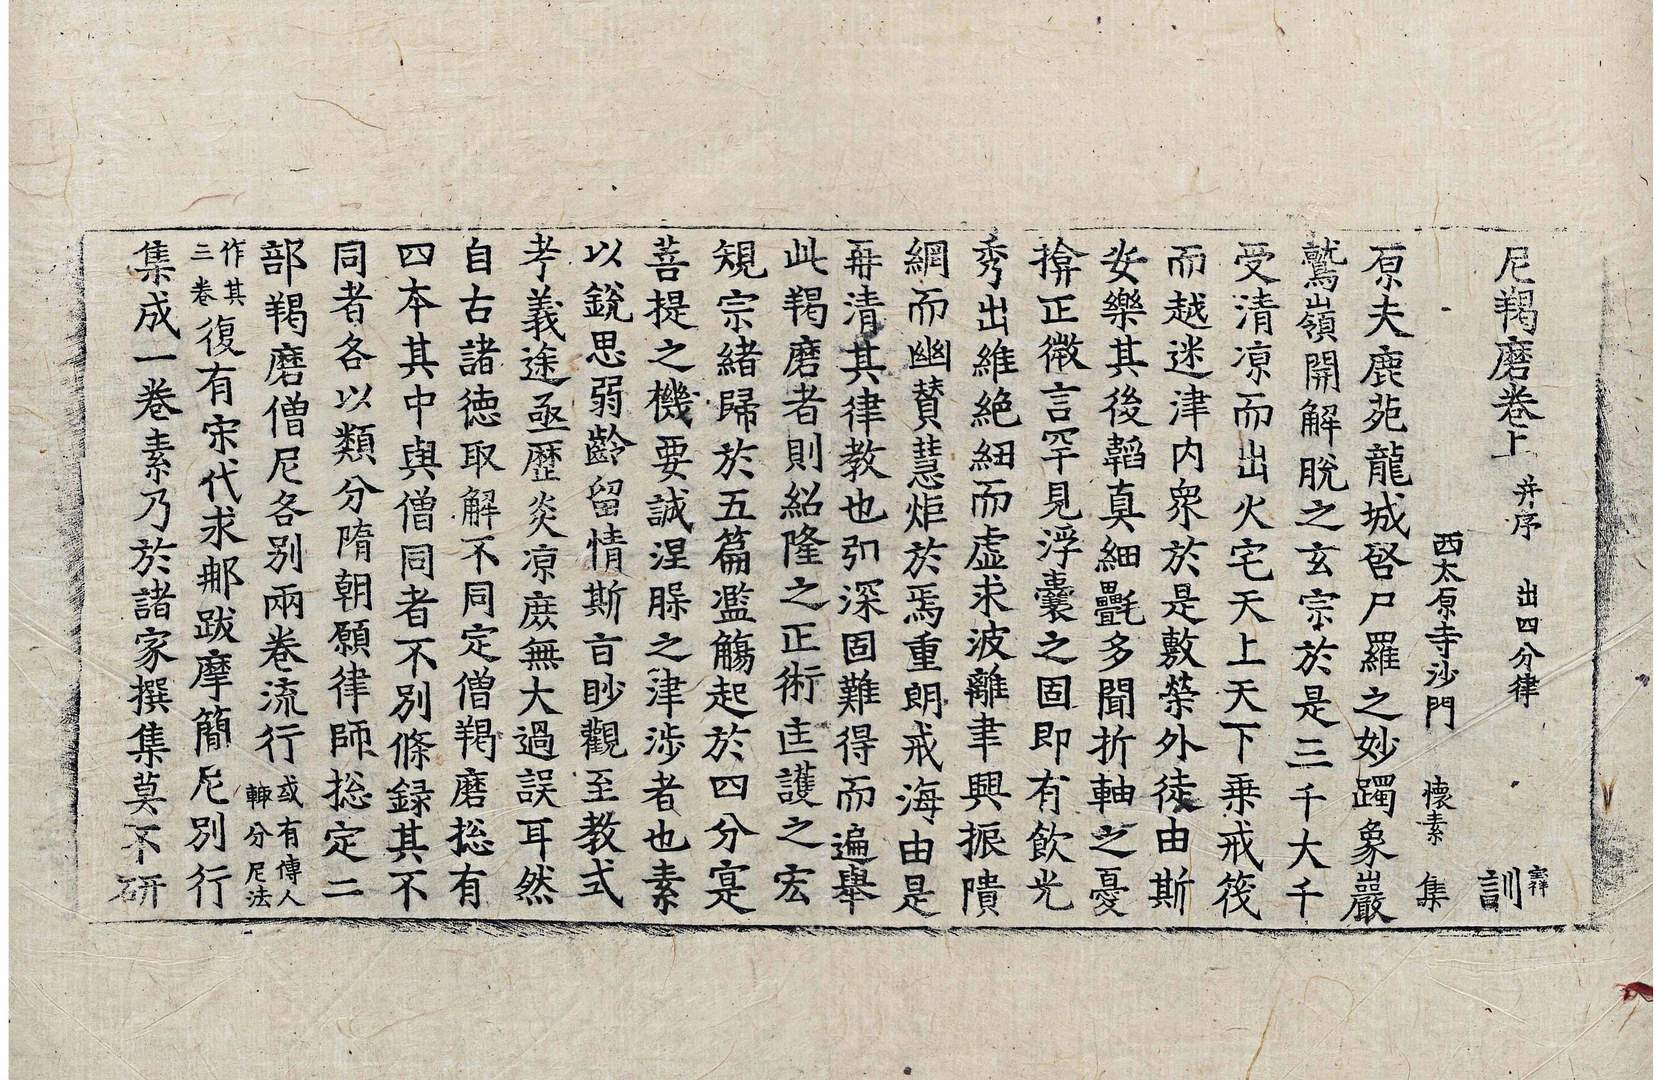 尼羯磨卷上 并序 出四分律 訓
西太原寺沙門 懷素 集
原夫鹿苑龍城啓尸羅之妙躅象巖
鷲嶺開解脫之玄宗於是三千大千
受清凉而出火宅天上天下乗戒筏
而越迷津内衆於是敷榮外徒由斯
安樂其後韜真細㲲多聞折軸之憂
揜正微言罕見浮囊之固即有飲光
秀出維絶細而虚求波離聿興振隤
綱而幽賛慧炬於焉重朗戒海由是
再清其律教也㢧深固難得而遍舉
此羯磨者則紹隆之正術匡護之宏
規宗緒歸於五篇濫觴起於四分寔
菩提之機要誠涅槃之津涉者也素
以銳思弱齡留情斯旨眇觀至教式
考義途亟歷炎凉庶無大過誤耳然
自古諸徳取解不同定僧羯磨捴有
四本其中與僧同者不別條録其不
同者各以類分隋朝願律師捴定二
部羯磨僧尼各別兩卷流行 或有傳人輙分尼法
作其三卷 復有宋代求那跋摩簡尼別行
集成一卷素乃於諸家撰集莫不研